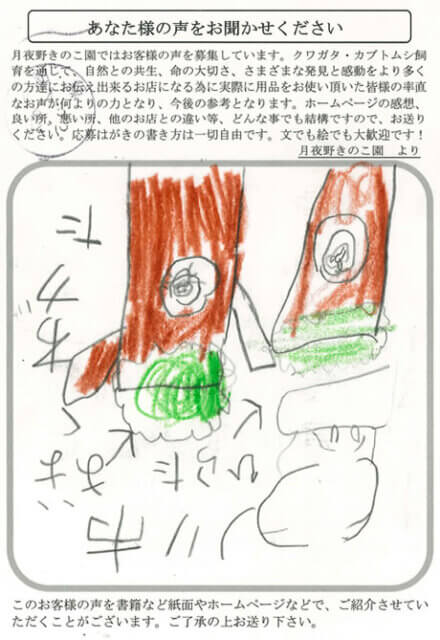 あなた様の声をお聞かせください
月夜野きのこ園ではお客様の声を募集しています。クワガタ・カブトムシ飼
育を通して、自然との共生、命の大切さ、さまざまな発見と感動をより多く
の方達にお伝え出来るお店になる為に実際に用品をお使い頂いた皆様の率直
なお声が何よりの力となり、今後の参考となります。ホームページの感想、
良い所，悪い所、他のお店との違い等、どんな事でも結構ですので、お送り
ください。応募はがきの書き方は一切自由です。文でも絵でも大歓迎です！
月夜野きのこ園　より
このお客様の声を書籍など紙面やホームページなどで、ご紹介させてい
ただくことがございます。ご了承の上お送り下さい。